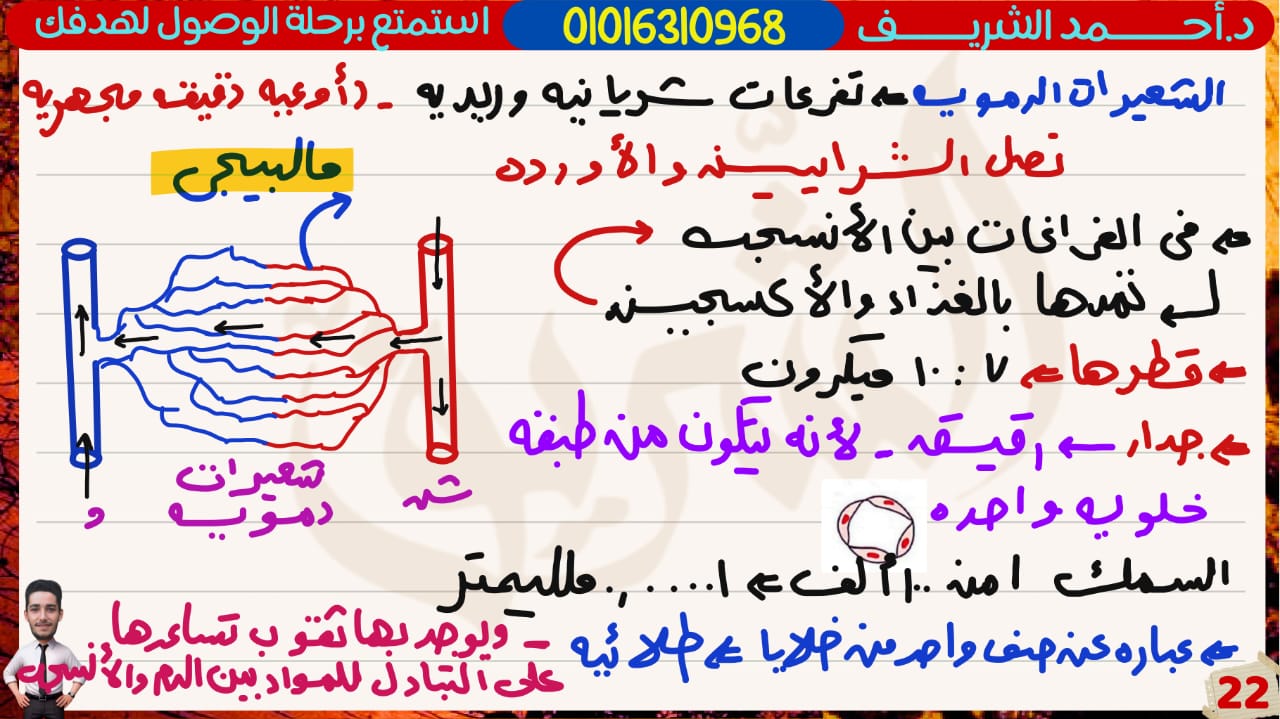 د.أحـــمد الشريـــف 01016310968 استمتع برحلة الوصول لهدفك
الشعيرات الدمويه ⇐ تفرعات شريانيه وريديه - (أوعيه دقيقه مجهريه
تصل الشرايين والأورده
مالبيجى
⇐ فى الفراغات بين الأنسجه
لـ تمدها بالغذاء والأكسجين
⇐ قطرها ⇐ ٧ : ١٠ ميكرون
⇐ جدار ← رقيقه - لأنه يتكون من طبقه
خلويه واحده
شـ
شعيرات
دمويه
و
السمك ١ من ١٠ ألف ⇐ ٠,٠٠٠١ ملليمتر
⇐ عباره عن صف واحد من خلايا ⇐ طلائيه
- ويوجد بها ثقوب تساعدها
على التبادل للمواد بين الدم والأنسجه
22